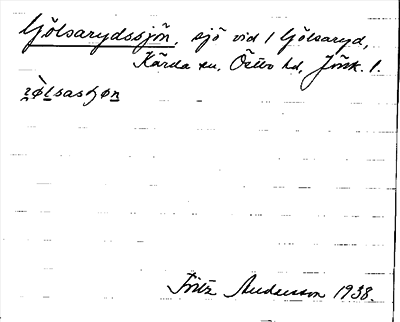 Gölsarydssjön, sjö vid 1 Gölsaryd,
Kärda sn, Östbo hd, Jönk. l.
Fritz Andersson 1938.